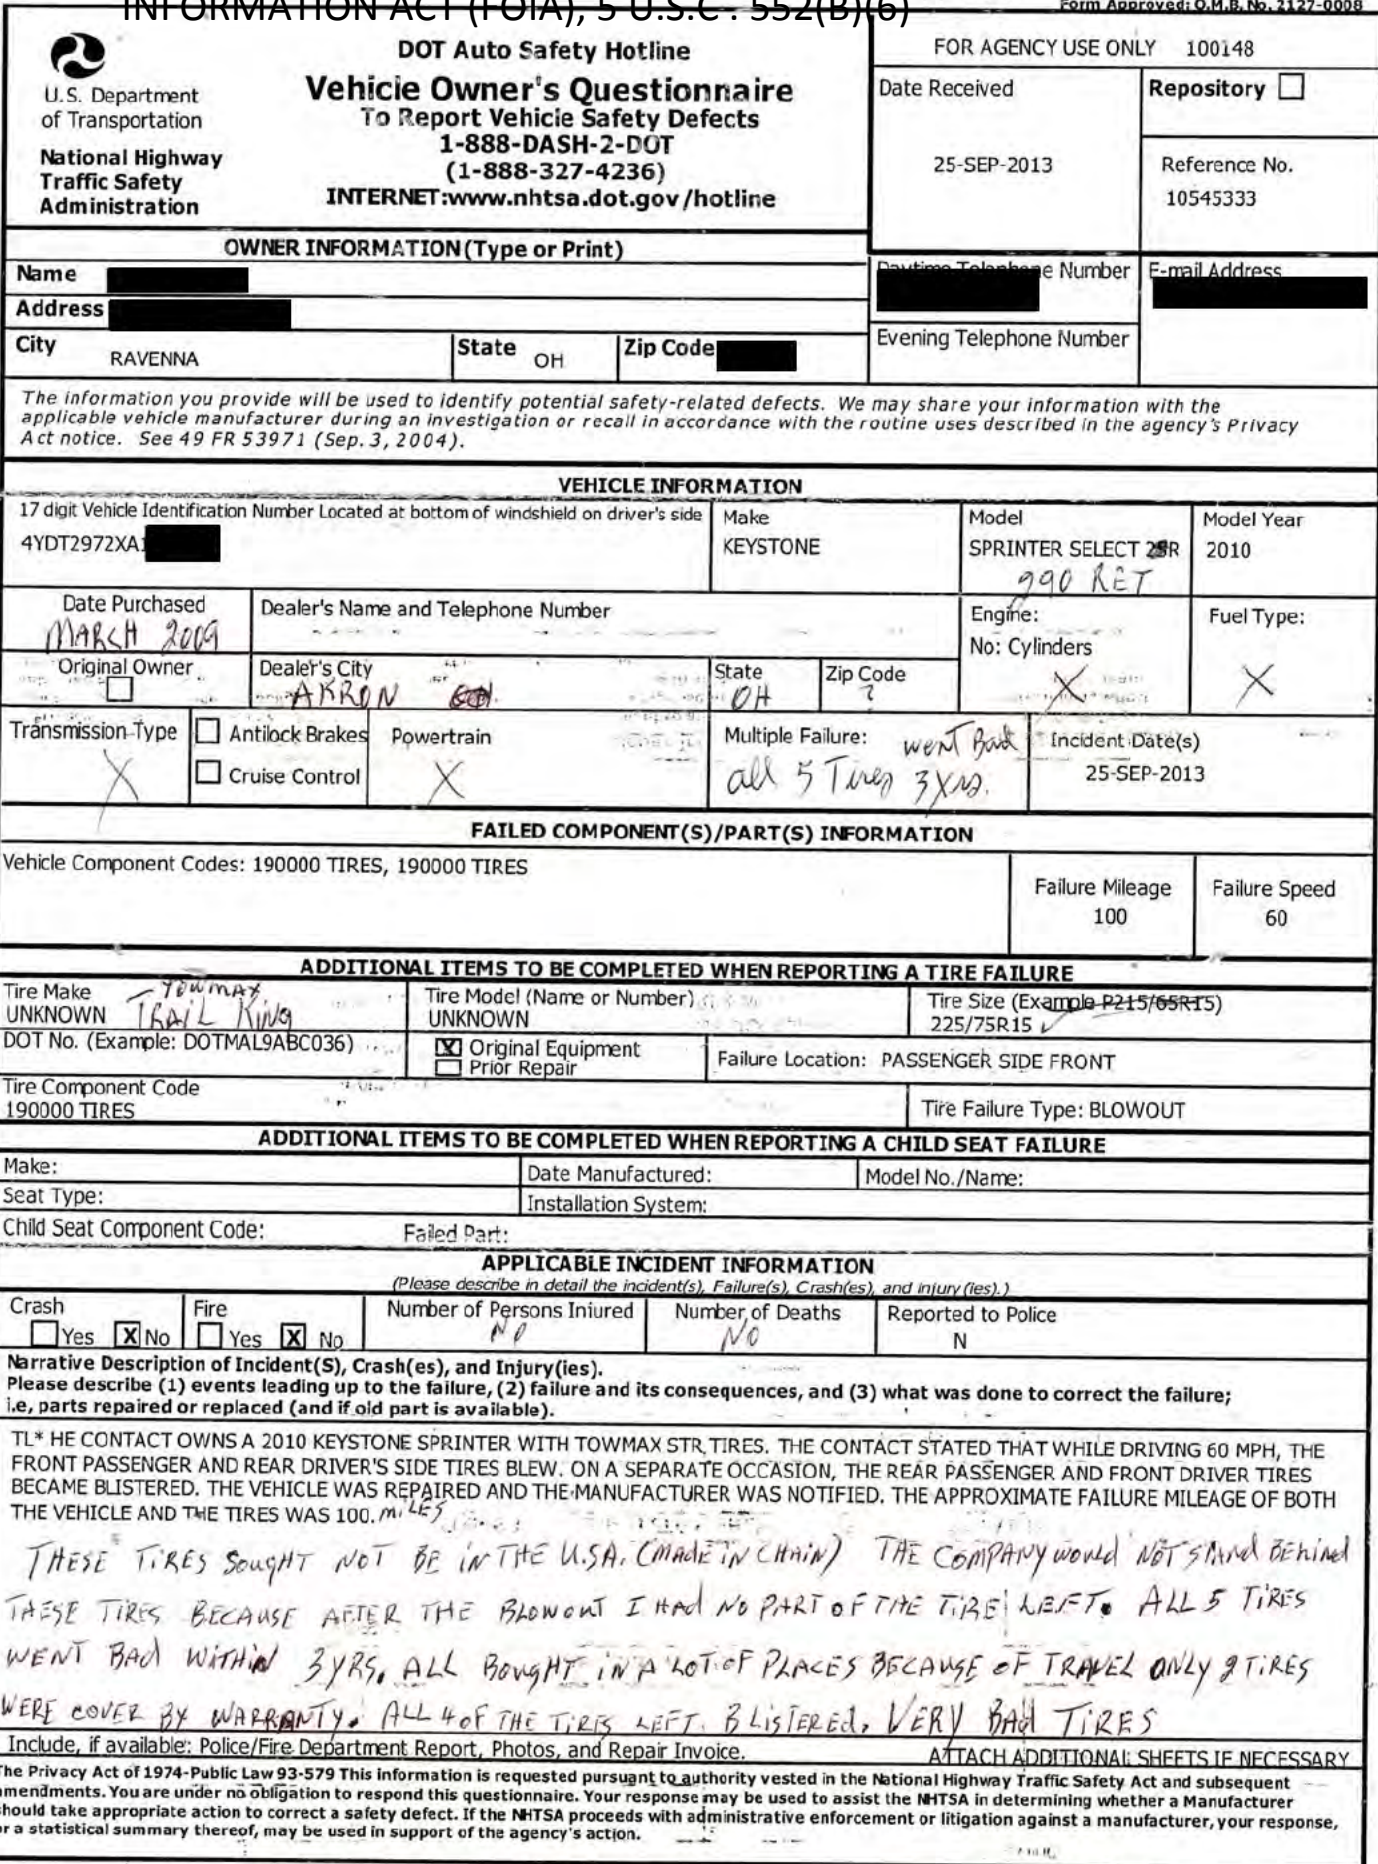 INFORMATION ACT (FOIA), 5 U.S.C. 552(B)(6)
Form Approved: O.M.B. No. 2127-0008
U.S. Department
of Transportation
National Highway
Traffic Safety
Administration
DOT Auto Safety Hotline
Vehicle Owner's Questionnaire
To Report Vehicle Safety Defects
1-888-DASH-2-DOT
(1-888-327-4236)
INTERNET:www.nhtsa.dot.gov/hotline
FOR AGENCY USE ONLY 100148
Date Received
25-SEP-2013
Repository
Reference No.
10545333
OWNER INFORMATION (Type or Print)
Name
Address
City RAVENNA
State OH
Zip Code
Daytime Telephone Number
E-mail Address
Evening Telephone Number
The information you provide will be used to identify potential safety-related defects. We may share your information with the
applicable vehicle manufacturer during an investigation or recall in accordance with the routine uses described in the agency's Privacy
Act notice. See 49 FR 53971 (Sep. 3, 2004).
VEHICLE INFORMATION
17 digit Vehicle Identification Number Located at bottom of windshield on driver's side
4YDT2972XA
Make
KEYSTONE
Model
SPRINTER SELECT
290 RET
Model Year
2010
Date Purchased
MARCH 2009
Dealer's Name and Telephone Number
Engine:
No: Cylinders
X
Fuel Type:
X
Original Owner
Dealer's City
AKRON
State
OH
Zip Code
?
Transmission Type
X
Antilock Brakes
Cruise Control
Powertrain
X
Multiple Failure: went Bad
all 5 Tires 3 Yrs.
Incident Date(s)
25-SEP-2013
FAILED COMPONENT(S)/PART(S) INFORMATION
Vehicle Component Codes: 190000 TIRES, 190000 TIRES
Failure Mileage
100
Failure Speed
60
ADDITIONAL ITEMS TO BE COMPLETED WHEN REPORTING A TIRE FAILURE
Tire Make - TOWMAX
UNKNOWN TRAIL KING
Tire Model (Name or Number)
UNKNOWN
Tire Size (Example P215/65R15)
225/75R15 ✓
DOT No. (Example: DOTMAL9ABC036)
X Original Equipment
Prior Repair
Failure Location: PASSENGER SIDE FRONT
Tire Component Code
190000 TIRES
Tire Failure Type: BLOWOUT
ADDITIONAL ITEMS TO BE COMPLETED WHEN REPORTING A CHILD SEAT FAILURE
Make:
Date Manufactured:
Model No./Name:
Seat Type:
Installation System:
Child Seat Component Code:
Failed Part:
APPLICABLE INCIDENT INFORMATION
(Please describe in detail the incident(s), Failure(s), Crash(es), and injury (ies).)
Crash
Yes X No
Fire
Yes X No
Number of Persons Injured
NO
Number of Deaths
NO
Reported to Police
N
Narrative Description of Incident(S), Crash(es), and Injury(ies).
Please describe (1) events leading up to the failure, (2) failure and its consequences, and (3) what was done to correct the failure;
i.e, parts repaired or replaced (and if old part is available).
TL* HE CONTACT OWNS A 2010 KEYSTONE SPRINTER WITH TOWMAX STR TIRES. THE CONTACT STATED THAT WHILE DRIVING 60 MPH, THE
FRONT PASSENGER AND REAR DRIVER'S SIDE TIRES BLEW. ON A SEPARATE OCCASION, THE REAR PASSENGER AND FRONT DRIVER TIRES
BECAME BLISTERED. THE VEHICLE WAS REPAIRED AND THE MANUFACTURER WAS NOTIFIED. THE APPROXIMATE FAILURE MILEAGE OF BOTH
THE VEHICLE AND THE TIRES WAS 100. MILES
THESE TIRES SOUGHT NOT BE IN THE U.S.A. (MADE IN CHAIN) THE COMPANY would NOT STAND BEHIND
THESE TIRES BECAUSE AFTER THE BLOWOUT I HAD NO PART OF THE TIRE LEFT. ALL 5 TIRES
WENT BAD WITHIN 3 YRS. ALL BOUGHT IN A LOT OF PLACES BECAUSE OF TRAVEL ONLY 2 TIRES
WERE COVER BY WARRANTY. ALL 4 OF THE TIRES LEFT. BLISTERED. VERY BAD TIRES
Include, if available: Police/Fire Department Report, Photos, and Repair Invoice.
ATTACH ADDITIONAL SHEETS IF NECESSARY
The Privacy Act of 1974-Public Law 93-579 This information is requested pursuant to authority vested in the National Highway Traffic Safety Act and subsequent
amendments. You are under no obligation to respond this questionnaire. Your response may be used to assist the NHTSA in determining whether a Manufacturer
should take appropriate action to correct a safety defect. If the NHTSA proceeds with administrative enforcement or litigation against a manufacturer, your response,
or a statistical summary thereof, may be used in support of the agency's action.